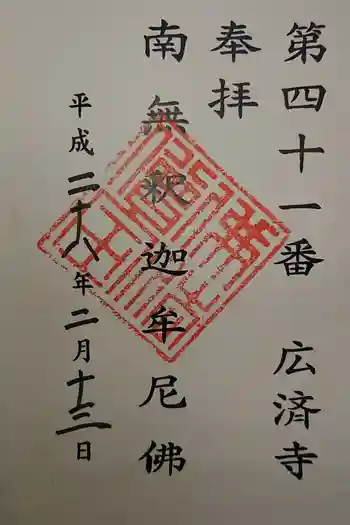 第四十一番 広済寺
奉拝
南無釈迦牟尼佛
平成二十八年二月十三日